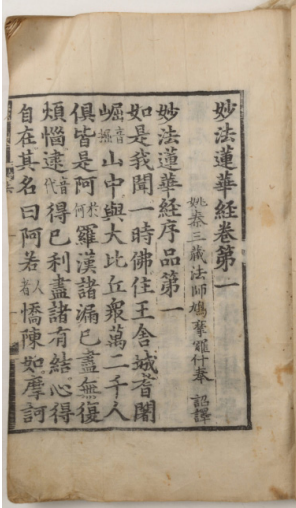 妙法蓮華經卷第一
姚秦三藏法師鳩摩羅什奉 詔譯
妙法蓮華經序品第一
如是我聞一時佛住王舍城耆闍
崛山中與大比丘衆萬二千人
俱皆是阿羅漢諸漏已盡無復
煩惱逮得已利盡諸有結心得
自在其名曰阿若憍陳如摩訶